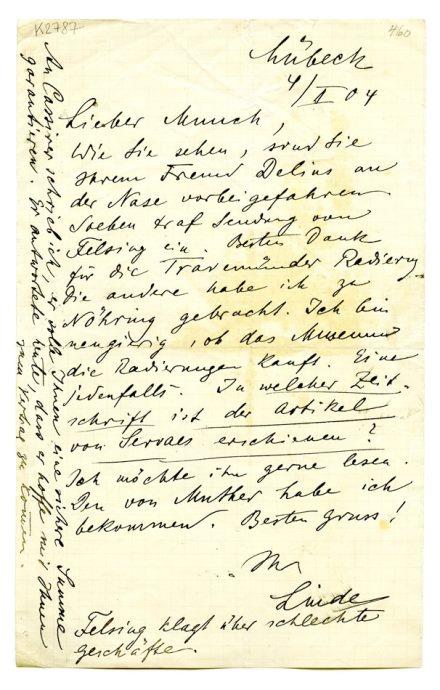 K2787
460
Lübeck
4/II 04
Lieber Munch,
Wie Sie sehen, sind Sie
Ihrem Freund Delius an
der Nase vorbeigefahren.
Soeben traf Sendung von
Felsing ein. Besten Dank
für die Travemünder Radierung
Die andere habe ich zu
Nöhring gebracht. Ich bin
neugierig, ob das Museum
die Radierungen kauft. Eine
jedenfalls. In welcher Zeit-
schrift ist der Artikel
von Servaes erschienen?
Ich möchte ihn gerne lesen.
Den von Muther habe ich
bekommen. Besten Gruss!
Ihr
Linde
Felsing klagt über schlechte
Geschäfte.
An Cassirer schrieb ich, er solle Ihnen eine sichere Summe
garantieren. Er antwortete heute, dass er hoffe mit Ihnen
zum Vertrag zu kommen.